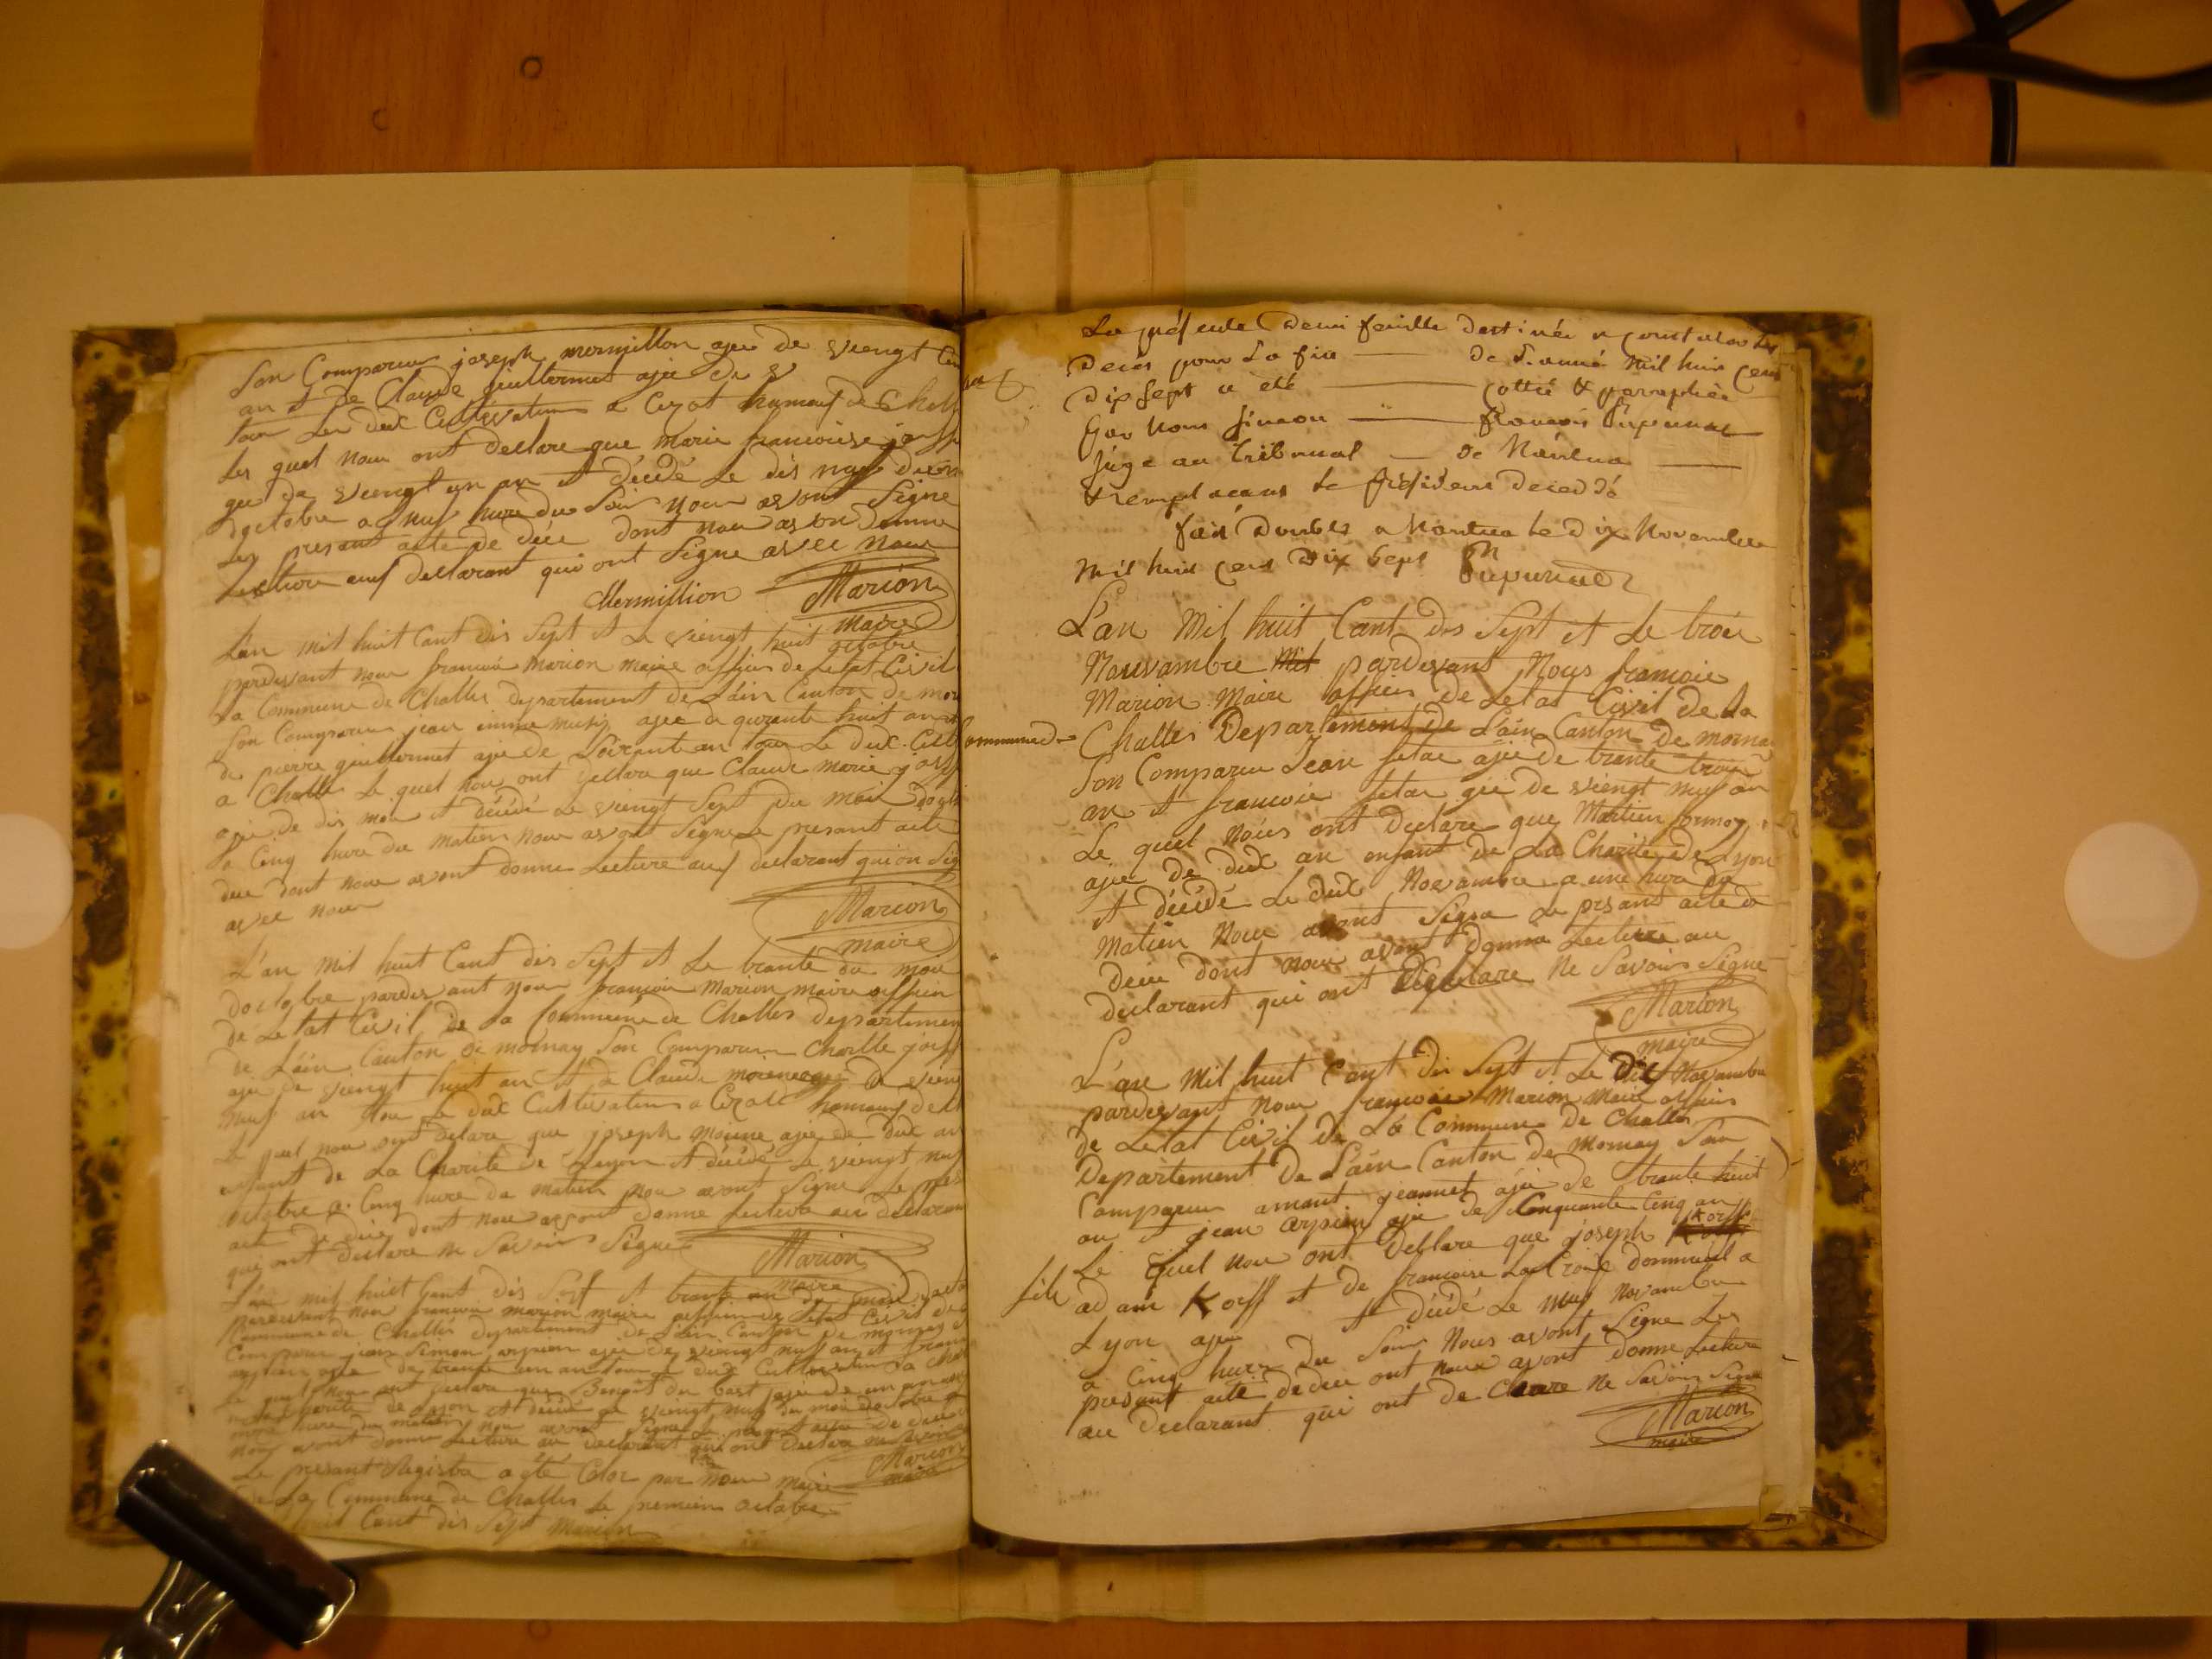 Son Comparun joseph mermillon ajee de viengt
an et de Claude guillermet ajee de
tour Les deux Cultivatun a Cezat hameux de Chall
Les quel nous ont declare que marie francoise joff
gee de viengt un an et décédé Le dis nuf du
doctobre a nuf hure du Soir nous avont Signe
Les presant acte de déce dont nous avon donne
Lecture aux declarant qui ont Signe avec nous
Mermillion Marion
maire
L'an mil huit Cant dis Sept et Le viengt huit octobre
pardevant nous francois marion maire officier de Letat Civil
La Commune de Challes departement de Lain Canton de mor
Son Comparun jean musy ajee de qurante huit an et
de pierre guillermet ajee de Soixante an tour Le deux Cult
a Challe Le quel nous ont declare que Claude marie joff
ajee de dis mois et décédé Le viengt Sept du mois
a Cinq hure du matien nous avont Signe Le presant acte
dece dont nous avont donne Lecture aux declarant qui on Sig
avec nous
Marion
maire
L'an mil huit Cant dis Sept et Le trante du mois
doctobre pardevant nous francois Marion maire officier
de Letat Civil de La Commune de Challes departemen
de Lain Canton de mornay Son Comparun Charlle joff
ajee de viengt huit an et de Claude de vieng
nuf an tour Le deux Cultivatun a Cezat hameux de
Le quel nous ont declare que joseph moine ajee de deux an
enfant de La Charite de Leyon et décédé Le viengt nuf
octobre a Cinq hure du matien nou avont Signe Le pres
acte de dece dont nous avont donne Lecture au declaran
qui ont declare ne Savoir Signe
Marion
maire
L'an mil huit Cant dis Sept et trante un du mois
pardevant nous francois marion maire officier de Letat Civil de
Commune de Challes departement de Lain Canton de mornay
Comparun jean Simon arpien ajee de viengt nuf an et
arpien ajee de trante un an tour Le deux Cultivatun a
Le quel nous ont declare que Benoit du bost ajee de un an
La Charite de Lyon et décédé Le viengt nuf du mois doctobre
hure du matien nous avont Signe Le presant acte de dece
nous avont donne Lecture au declarant qui ont declare ne Savoir
Marion
maire
Le presant Registre a été Clos par nous maire
de La Commune de Challes Le premier octobre
huit Cant dis Sept Marion
La présente Demi feuille destinée a constater les
Deces pour La fin de L'anné mil huit cent
Dix Sept a eté cottée & paraphée
Par Nous Simeon francois
Juge au Tribunal de Nantua
& remplacans Le président decedé
fait Doubles a Nantua Le Dix Novembre
mil huit cent Dix Sept
L'an Mil huit Cant dis Sept et Le trois
Nouvambre pardevant Nous francois
Marion Maire officier de Letat Civil de La
Commune de Challes Departement de L'ain Canton de mornay
Son Comparun Jean ajée de trante trois
an et francois gée de viengt nuf an
Le quel nous ont declare que Martien formoy
ajee de deux an enfant de La Charite de Lyon
et décédé Le deux Novambre a une hure du
matien Nous avont Signe Le presant acte de
dece dont nous avont donne Lecture au
declarant qui ont declare Ne Savoir Signe
Marion
maire
L'an Mil huit Cent dis Sept et Le Dix Novambre
pardevant nous francois Marion Maire officier
de Letat Civil de La Commune de Challes
Departement de L'ain Canton de Mornay Son
Comparun amant jeannet ajée de trante huit
an et jean arpien ajée de Cinquante Cinq an
Le quel nou ont declare que joseph Korff
fils adam Korff et de francoise LaCroix domicile a
Lyon aje et décédé Le nuf Novambre
a Cinq hures du Soir Nous avont Signe Les
presant acte dedece ont nous avont donne Lecture
au declarant qui ont de Clare Ne Savoir Signe
Marion
maire